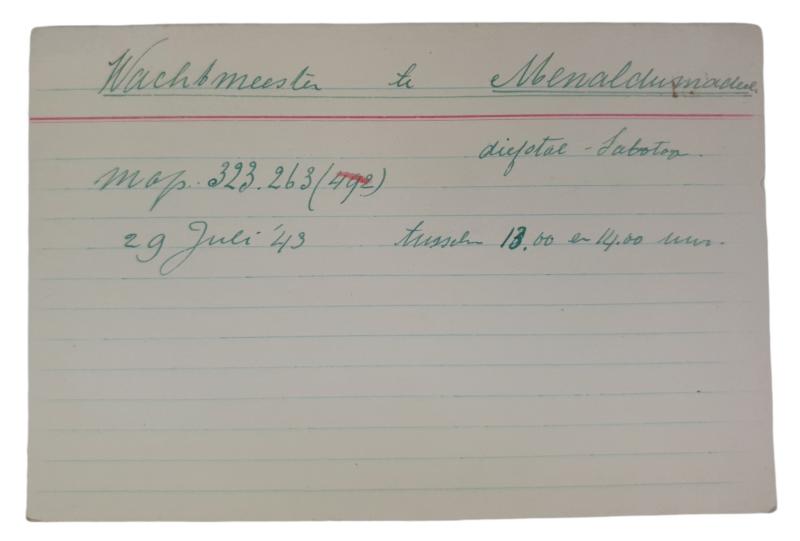 Wachtmeester te Menaldumadeel.
diefstal - Sabotage.
Map. 323.263 (492)
29 Juli '43 tusschen 13.00 en 14.00 uur.